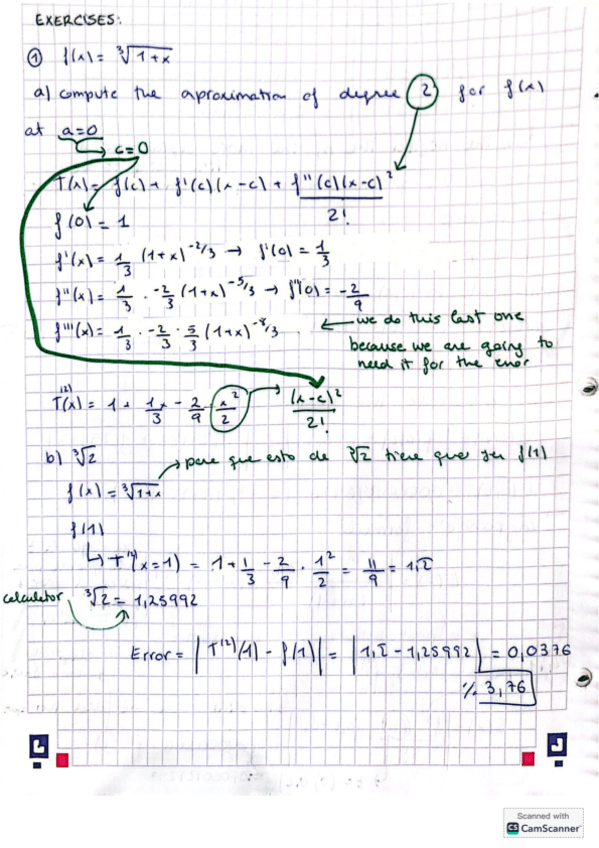 EXERCISES:
① f(x) = ∛1+x
a) compute the aproximation of degree 2 for f(x)
at a=0
c=0
T(x) = f(c) + f'(c)(x-c) + f''(c)(x-c)² / 2!
f(0) = 1
f'(x) = 1/3 (1+x)^-2/3 → f'(0) = 1/3
f''(x) = 1/3 · -2/3 (1+x)^-5/3 → f''(0) = -2/9
f'''(x) = 1/3 · -2/3 · 5/3 (1+x)^-8/3 ← we do this last one
because we are going to
need it for the error
T^(2)(x) = 1 + 1/3 x - 2/9 · x²/2 → (x-c)² / 2!
b) ∛2 → para que esto de ∛2 tiene que ser f(1)
f(x) = ∛1+x
f(1)
↳ T(x=1) = 1 + 1/3 - 2/9 · 1²/2 = 11/9 = 1,2̄
calculator ∛2 = 1,25992
Error = | T^(2)(1) - f(1) | = | 1,2̄ - 1,25992 | = 0,0376
% 3,76
Scanned with
CS CamScanner